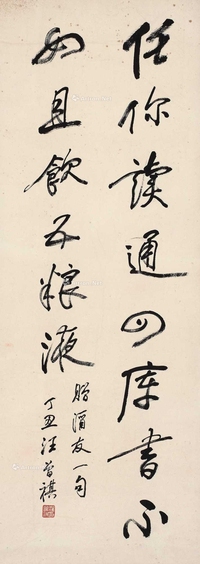 任你讀通四库書不
如且飲五粮液
贈酒友一句
丁丑汪曾祺